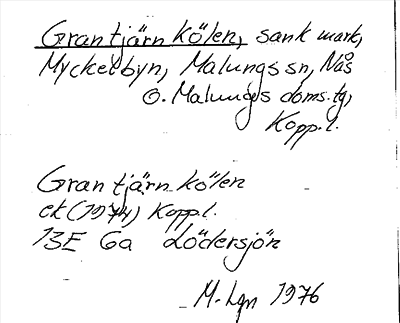 Grantjärn kölen, sank mark,
Myckelbyn, Malungs sn, Nås
o. Malungs doms.tg,
Kopp.l.
Grantjärn kölen
ek (1974) Kopp.l.
13E 6a Lödersjön
M. Lgn 1976